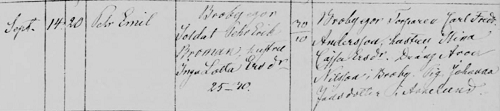 Sept. 14 20 Per Emil
Broby egor
Soldat Joh. Erik
Broman, hustru
Inga Lotta Ersdr
25-30.
30/10
Broby egor Torparen Carl Fredr.
Andersson, hustrun Stina
Cajsa Ersdr. Dräng Aron
Nilsson i Broby. Pig. Johanna
Jansdotter i